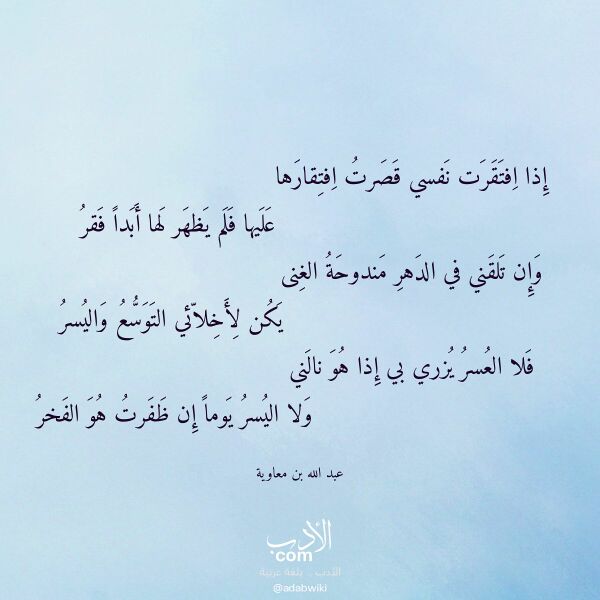 إِذا اِفتَقَرَت نَفسي قَصَرتُ اِفتِقارَها
عَلَيها فَلَم يَظهَر لَها أَبَداً فَقرُ
وَإِن تَلقَني في الدَهرِ مَندوحَةُ الغِنى
يَكُن لِأَخِلّائي التَوَسُّعُ وَاليُسرُ
فَلا العُسرُ يُزري بي إِذا هُوَ نالَني
وَلا اليُسرُ يَوماً إِن ظَفَرتُ هُوَ الفَخرُ
عبد الله بن معاوية
الأدب
com
الأدب .. بلغة عربية
@adabwiki